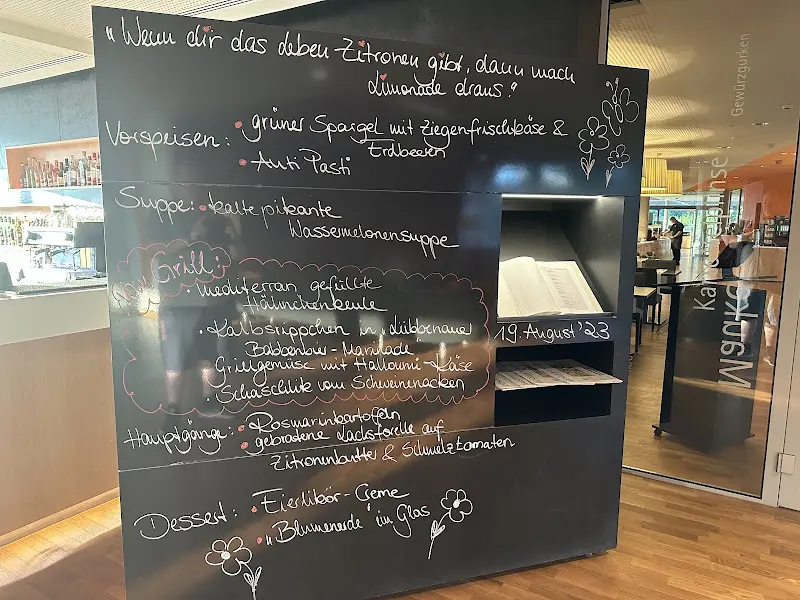 „Wenn dir das Leben Zitronen gibt, dann mach
Limonade draus!"
Vorspeisen: • grüner Spargel mit Ziegenfrischkäse &
Erdbeeren
• Anti Pasti
Suppe: • kalte pikante
Wassermelonensuppe
Grill:
• mediterran gefüllte
Hähnchenkeule
• Kalbsrippchen in Lübbenauer
Babbenbier-Marinade
Grillgemüse mit Halloumi-Käse
• Schaschlik vom Schweinenacken
Hauptgänge: • Rosmarinkartoffeln
• gebratene Lachsforelle auf
Zitronenbutter & Schmelztomaten
Dessert: • Eierlikör-Creme
• „Blumenerde" im Glas
19. August '23
Gewürzgurken